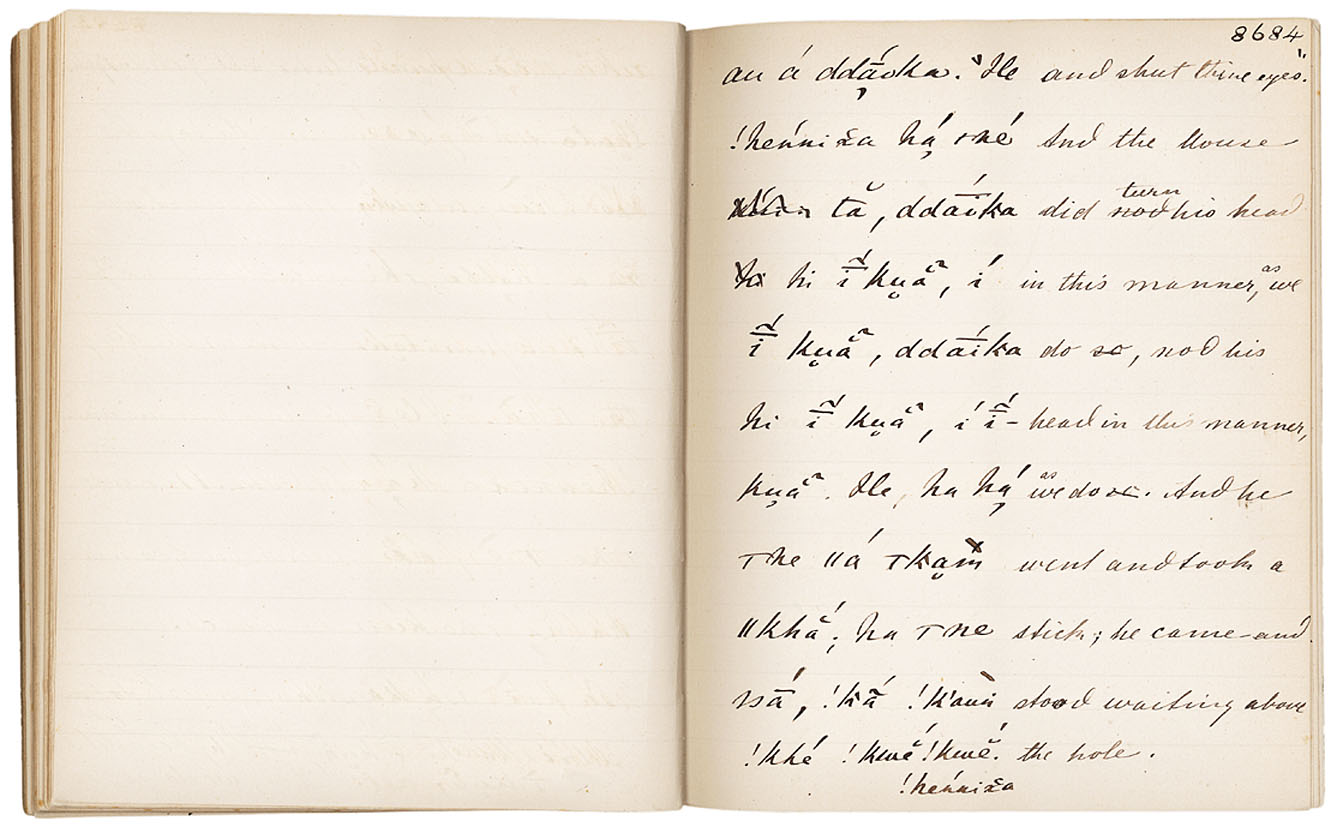 8684
au á ddāoka." He and shut thine eyes."
!hénniša hą́ ⊤hé And the Mouse
tắ, ddāíka did turn nod his head
hi ī́̃ kṷẵ, í in this manner, as we
ī́̃ kṷẵ, ddāíka do so, nod his
hi ī́̃ kṷẵ, í ī́̃- head in this manner,
kṷẵ. He, ha hą́ as we do so. And he
⊤he ǁá ⊤kąm went and took a
ǁkhắ; ha ⊤ne stick; he came and
ssā́, !kā́̃ !kaui stood waiting above
!khé !kwẽ́ !kwẽ́. the hole.
!hénniša